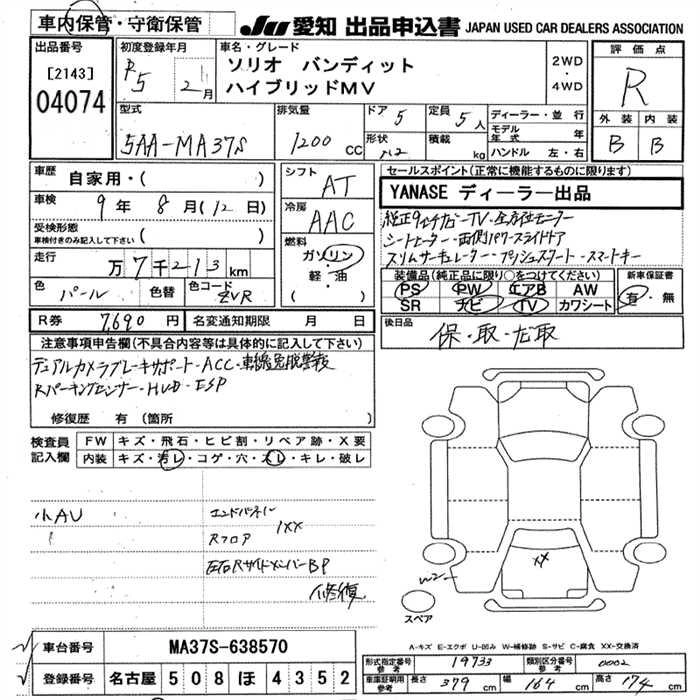 車内保管・守衛保管
JU 愛知 出品申込書 JAPAN USED CAR DEALERS ASSOCIATION
出品番号
[2143]
04074
初度登録年月
R5 2月
車名・グレード
ソリオ バンディット
ハイブリッドMV
2WD
・
4WD
評価点
R
外装 内装
B B
型式
5AA-MA37S
排気量
1200 CC
ドア 5
形状
定員 5人
積載 kg
ディーラー・並行
モデル年式 年
ハンドル 左・右
車歴
自家用・( )
車検
9年 8月(12日)
受検形態
車検付きのみ記入して下さい ( )
走行
万7千213km
色
パール
色替
色コード
ZVR
シフト
AT
冷房
AAC
燃料
ガソリン
・軽・油
( )
セールスポイント(正常に機能するものに限ります)
YANASE ディーラー出品
純正9インチナビ-TV・全方位モニター
シートヒーター・両側パワースライドドア
スリムサーキュレーター・プッシュスタート・スマートキー
装備品(純正品に限り○をつけてください)
PS PW エアB AW
SR ナビ TV カワシート
新車保証書
有・無
R券 7,690円
名変通知期限 月 日
後日品
保・取・ナビ取
注意事項申告欄(不具合内容等は具体的に記入して下さい)
デュアルカメラブレーキサポート・ACC・車線逸脱警報
Rパーキングセンサー・HUD・ESP
修復歴 有(箇所 )
検査員
記入欄
FW キズ・飛石・ヒビ割・リペア跡・X要
内装 キズ・汚レ・コゲ・穴・スレ・キレ・破レ
小AU
エンドパネル
Rフロア
1XX
左右RサイドメンバーBP
修復
XX
W2
スペア
A-キズ E-エクボ U-凹み W-補修跡 S-サビ C-腐食 XX-交換済
車台番号 MA37S-638570
登録番号 名古屋 508 ほ 4352
形式指定番号
参考
19733
類別区分番号
参考
0002
車庫証明用
参考
長さ 379 cm 幅 164 cm 高さ 174 cm